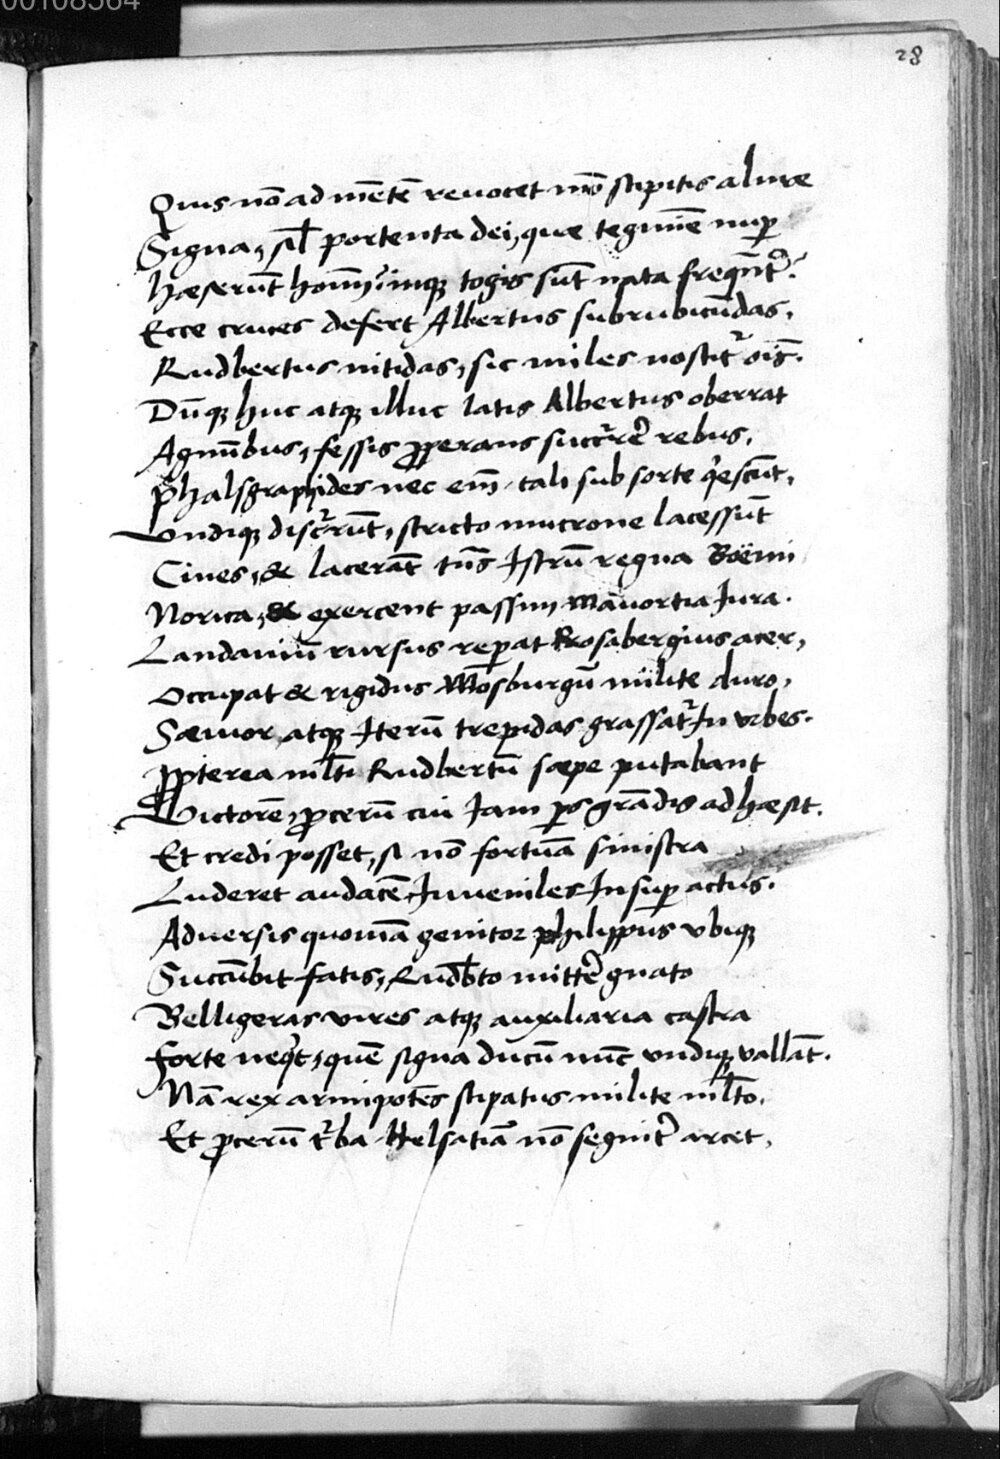 00108564
28
Quis nō ad mētē revocet mō stipitis almæ
Signa, sl̄ portenta dei, que tegmīe nup̄
hæserūt homī; inq; togis sūt nata freq̄nt̄.
Ecce cruces defert Albertus subrubicūdas,
Rudbertus nitidas, sic miles nostit̄ oīs.
Dūq; huc atq; illuc latis Albertus oberrat
Agmībus, fessis p̱perans succr̄rē rebus,
Phalsgraphides nec em̄ tali sub sorte q̇escūt,
Undiq; discr̄rūt, stricto mucrone lacessūt
Cives, & lacerāt tn̄s Istrū regna Boëmi
Norica, & exercent passim mavortia Iura.
Landavium rursus rep̱at Rosabergius acer,
Occupat & rigidus Mosburgū milite duro,
Sævior, atq; Iterū trepidas grassat̄ In urbes.
P̱pterea ml̄ti Rudbertū sæpe putabant
Victorē, p̱cerū cui Iam ps̄ grādis adhæsit.
Et credi posset, si nō fortūa sinistra
Luderet audacē Iuveniles Insup̱ actus.
Adversis quoniā genitor philippus ubiq;
Succūbit fatis, Rudb̄to mittē gnato
Belligeras vires atq; auxiliaria castra
Forte neq̇t, quē signa ducū nūc undiq; vallāt.
Nā rex armipotēs stipatus milite ml̄to,
Et p̱cerū t̄ba Helsatiā nō segnit̄ arcet,